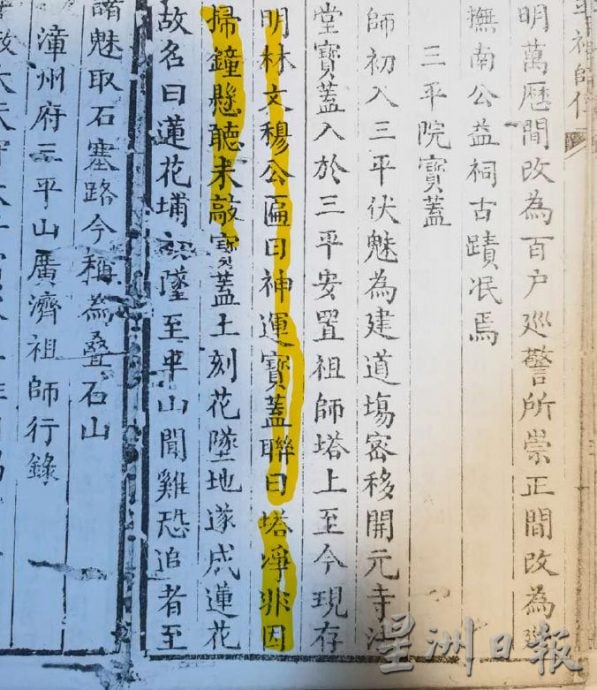 平祖師傳
明萬曆間改為百户巡警所崇正間改為
撫南公益祠古蹟泯焉
三平院寶蓋
師初入三平伏魅為建道塲密移開元寺法
堂寶蓋入於三平安置祖師塔上至今現存
明林文穆公匾曰神運寶蓋聯曰塔凈非因
掃鐘懸聽未敲寶蓋上刻花墜地遂成蓮花
故名曰蓮花埔初墜至平山聞雞恐追者至
諸魅取石塞路今稱為叠石山
漳州府三平山廣濟祖師行錄
星洲日報